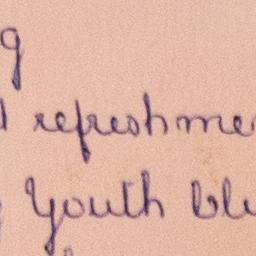 g
refreshme
Youth blu